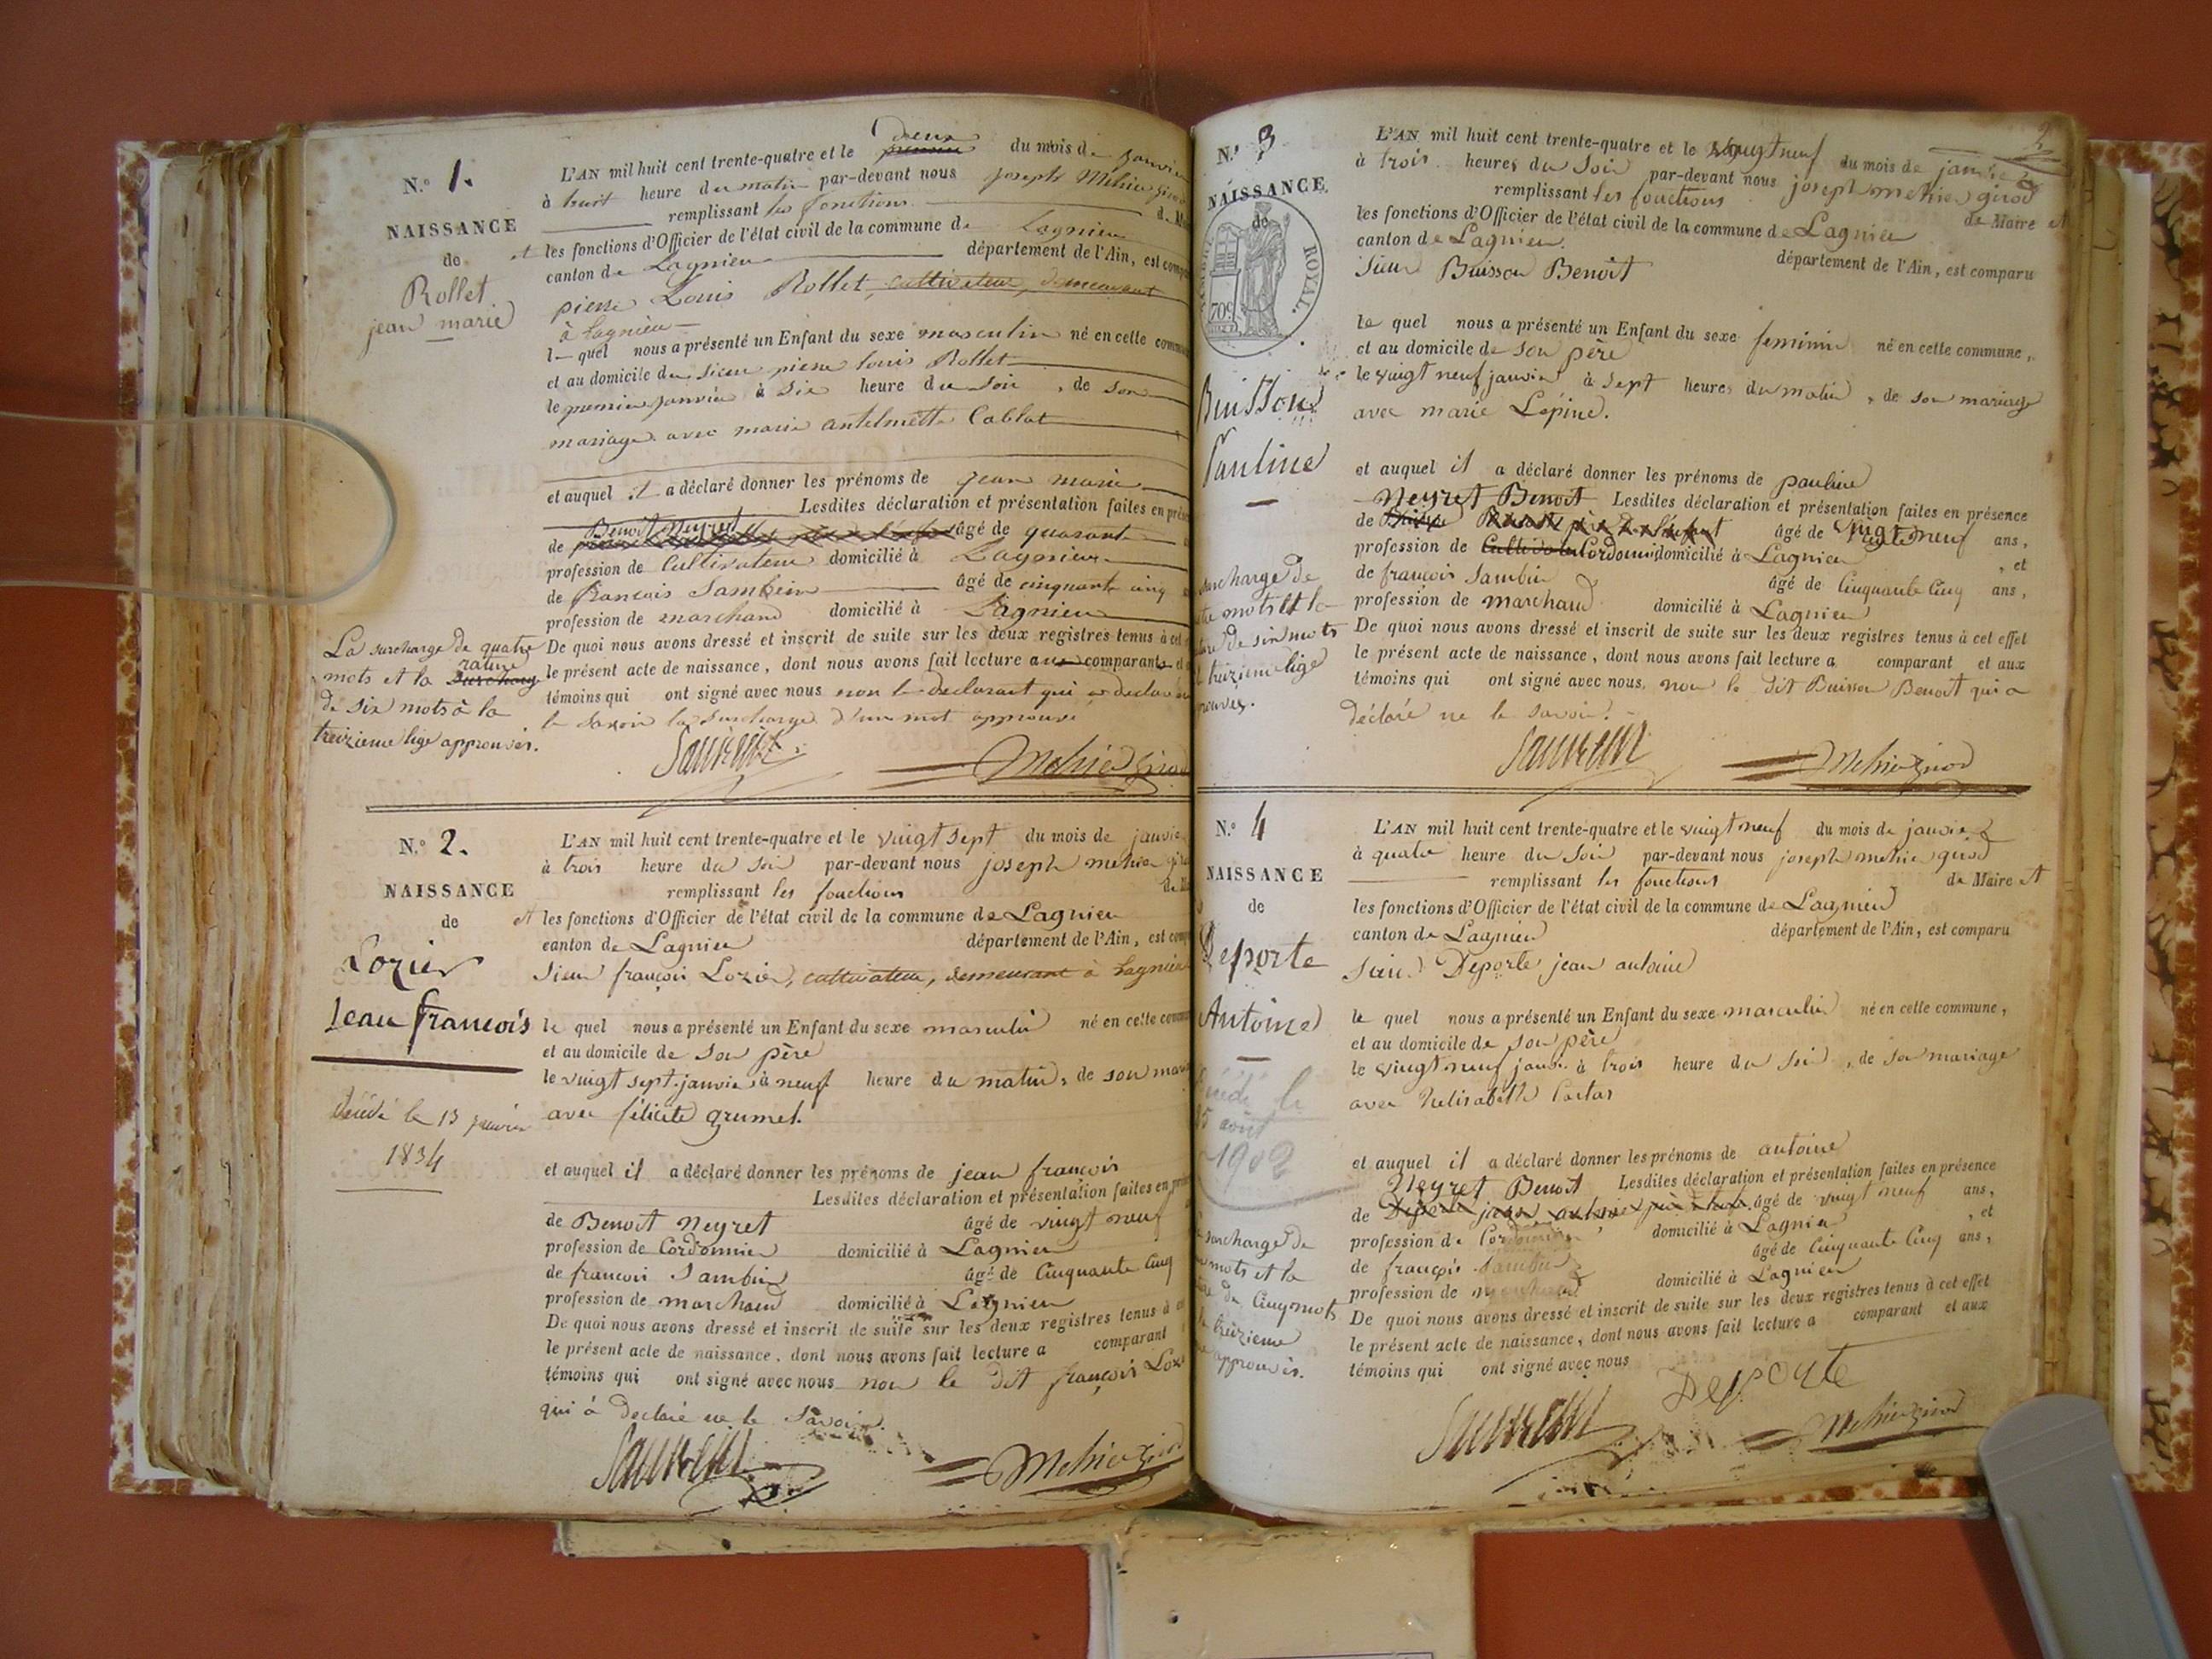 N.° 1.
NAISSANCE
de
Rollet
jean marie
L'AN mil huit cent trente-quatre et le deux premier du mois de janvier
à huit heure du matin par-devant nous joseph Mehier girod
remplissant les fonctions
et les fonctions d'Officier de l'état civil de la commune de Lagnieu
canton de Lagnieu département de l'Ain, est comp
pierre Louis Rollet, cultivateur, demeurant
à Lagnieu
l quel nous a présenté un Enfant du sexe masculin né en cette comm
et au domicile du sieur pierre louis Rollet
le premier janvier à six heure du soir, de son
mariage avec marie antelmette Cablat
et auquel il a déclaré donner les prénoms de jean marie
Lesdites déclaration et présentation faites en prése
de Benoit Neyret âgé de quarante
profession de Cultivateur domicilié à Lagnieu
de francois Sambin âgé de cinquante cinq
profession de marchand domicilié à Lagnieu
De quoi nous avons dressé et inscrit de suite sur les deux registres tenus à cet
le présent acte de naissance, dont nous avons fait lecture aux comparants et
témoins qui ont signé avec nous non le declarant qui a declaré
le savoir la surcharge d'un mot approuvé
La surcharge de quatre
mots et la rature surcharge
de six mots à la
treizieme lige approuvés.
Mehier girod
N.° 2.
NAISSANCE
de
Lozier
Jean francois
décédé le 13 janvier
1834
L'AN mil huit cent trente-quatre et le vingt sept du mois de janvie
à trois heure du soir par-devant nous joseph mehier giro
remplissant les fonctions
et les fonctions d'Officier de l'état civil de la commune de Lagnieu
canton de Lagnieu département de l'Ain, est comp
Sieur françois Lozier, cultivateur, demeurant à Lagnieu
le quel nous a présenté un Enfant du sexe masculin né en cette comm
et au domicile de son père
le vingt sept janvier à neuf heure du matin, de son maria
avec félicité grumet.
et auquel il a déclaré donner les prénoms de jean françois
Lesdites déclaration et présentation faites en prés
de Benoit Neyret âgé de vingt neuf
profession de Cordonnier domicilié à Lagnieu
de francois Sambin âgé de Cinquante Cinq
profession de marchand domicilié à Lagnieu
De quoi nous avons dressé et inscrit de suite sur les deux registres tenus à
le présent acte de naissance, dont nous avons fait lecture a comparant
témoins qui ont signé avec nous non le dit françois Loz
qui à declaré ne le Savoir.
Mehier girod
2
N.° 3
NAISSANCE
de
ROYAL.
70c
Buisson
Pauline
L'AN mil huit cent trente-quatre et le vingt neuf du mois de janvier
à trois heures du Soir par-devant nous joseph mehier girod
remplissant les fonctions de Maire et
les fonctions d'Officier de l'état civil de la commune de Lagnieu
canton de Lagnieu. département de l'Ain, est comparu
Sieur Buisson Benoit
le quel nous a présenté un Enfant du sexe feminin né en cette commune,
et au domicile de son père
le vingt neuf janvier à sept heures du matin, de son mariage
avec marie Lépine.
et auquel il a déclaré donner les prénoms de pauline
Neyret Benoit Lesdites déclaration et présentation faites en présence
de âgé de vingt neuf ans,
profession de Cultivateur Cordonnier domicilié à Lagnieu, et
de françois Sambin âgé de Cinquante Cinq ans,
profession de marchand domicilié à Lagnieu
De quoi nous avons dressé et inscrit de suite sur les deux registres tenus à cet effet
le présent acte de naissance, dont nous avons fait lecture a comparant et aux
témoins qui ont signé avec nous, non le dit Buisson Benoit qui a
déclaré ne le savoir.
surcharge de
mots et la
de six mots
treizieme lige
Mehier girod
N.° 4
NAISSANCE
de
Deporte
Antoine
décédé le
15 août
1902
L'AN mil huit cent trente-quatre et le vingt neuf du mois de janvier
à quatre heure du Soir par-devant nous joseph mehier girod
remplissant les fonctions de Maire et
les fonctions d'Officier de l'état civil de la commune de Lagnieu
canton de Lagnieu département de l'Ain, est comparu
Sieur Deporte jean antoine
le quel nous a présenté un Enfant du sexe masculin né en cette commune,
et au domicile de son père
le vingt neuf janvier à trois heure du soir, de son mariage
avec
et auquel il a déclaré donner les prénoms de antoine
Neyret Benoit Lesdites déclaration et présentation faites en présence
de Deporte jean antoine père âgé de vingt neuf ans,
profession de Cordonnier domicilié à Lagnieu, et
de françois Sambin âgé de Cinquante Cinq ans,
profession de marchand domicilié à Lagnieu
De quoi nous avons dressé et inscrit de suite sur les deux registres tenus à cet effet
le présent acte de naissance, dont nous avons fait lecture a comparant et aux
témoins qui ont signé avec nous
surcharge de
mots et la
de Cinq mots
treizieme
approuvés.
Deporte
Mehier girod